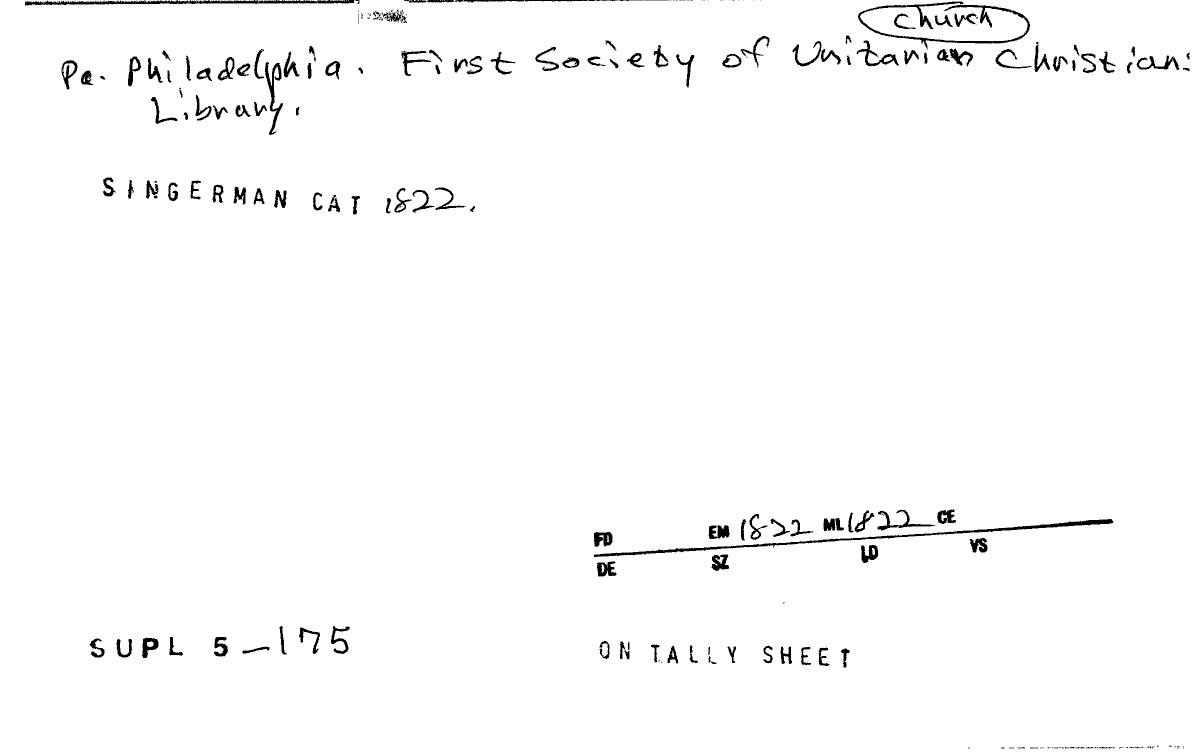 Church
Pa. Philadelphia. First Society of Unitarian Christians
Library.
SINGERMAN CAT 1822.
FD EM 1822 ML 1822 CE
DE SZ LD VS
SUPL 5-175
ON TALLY SHEET